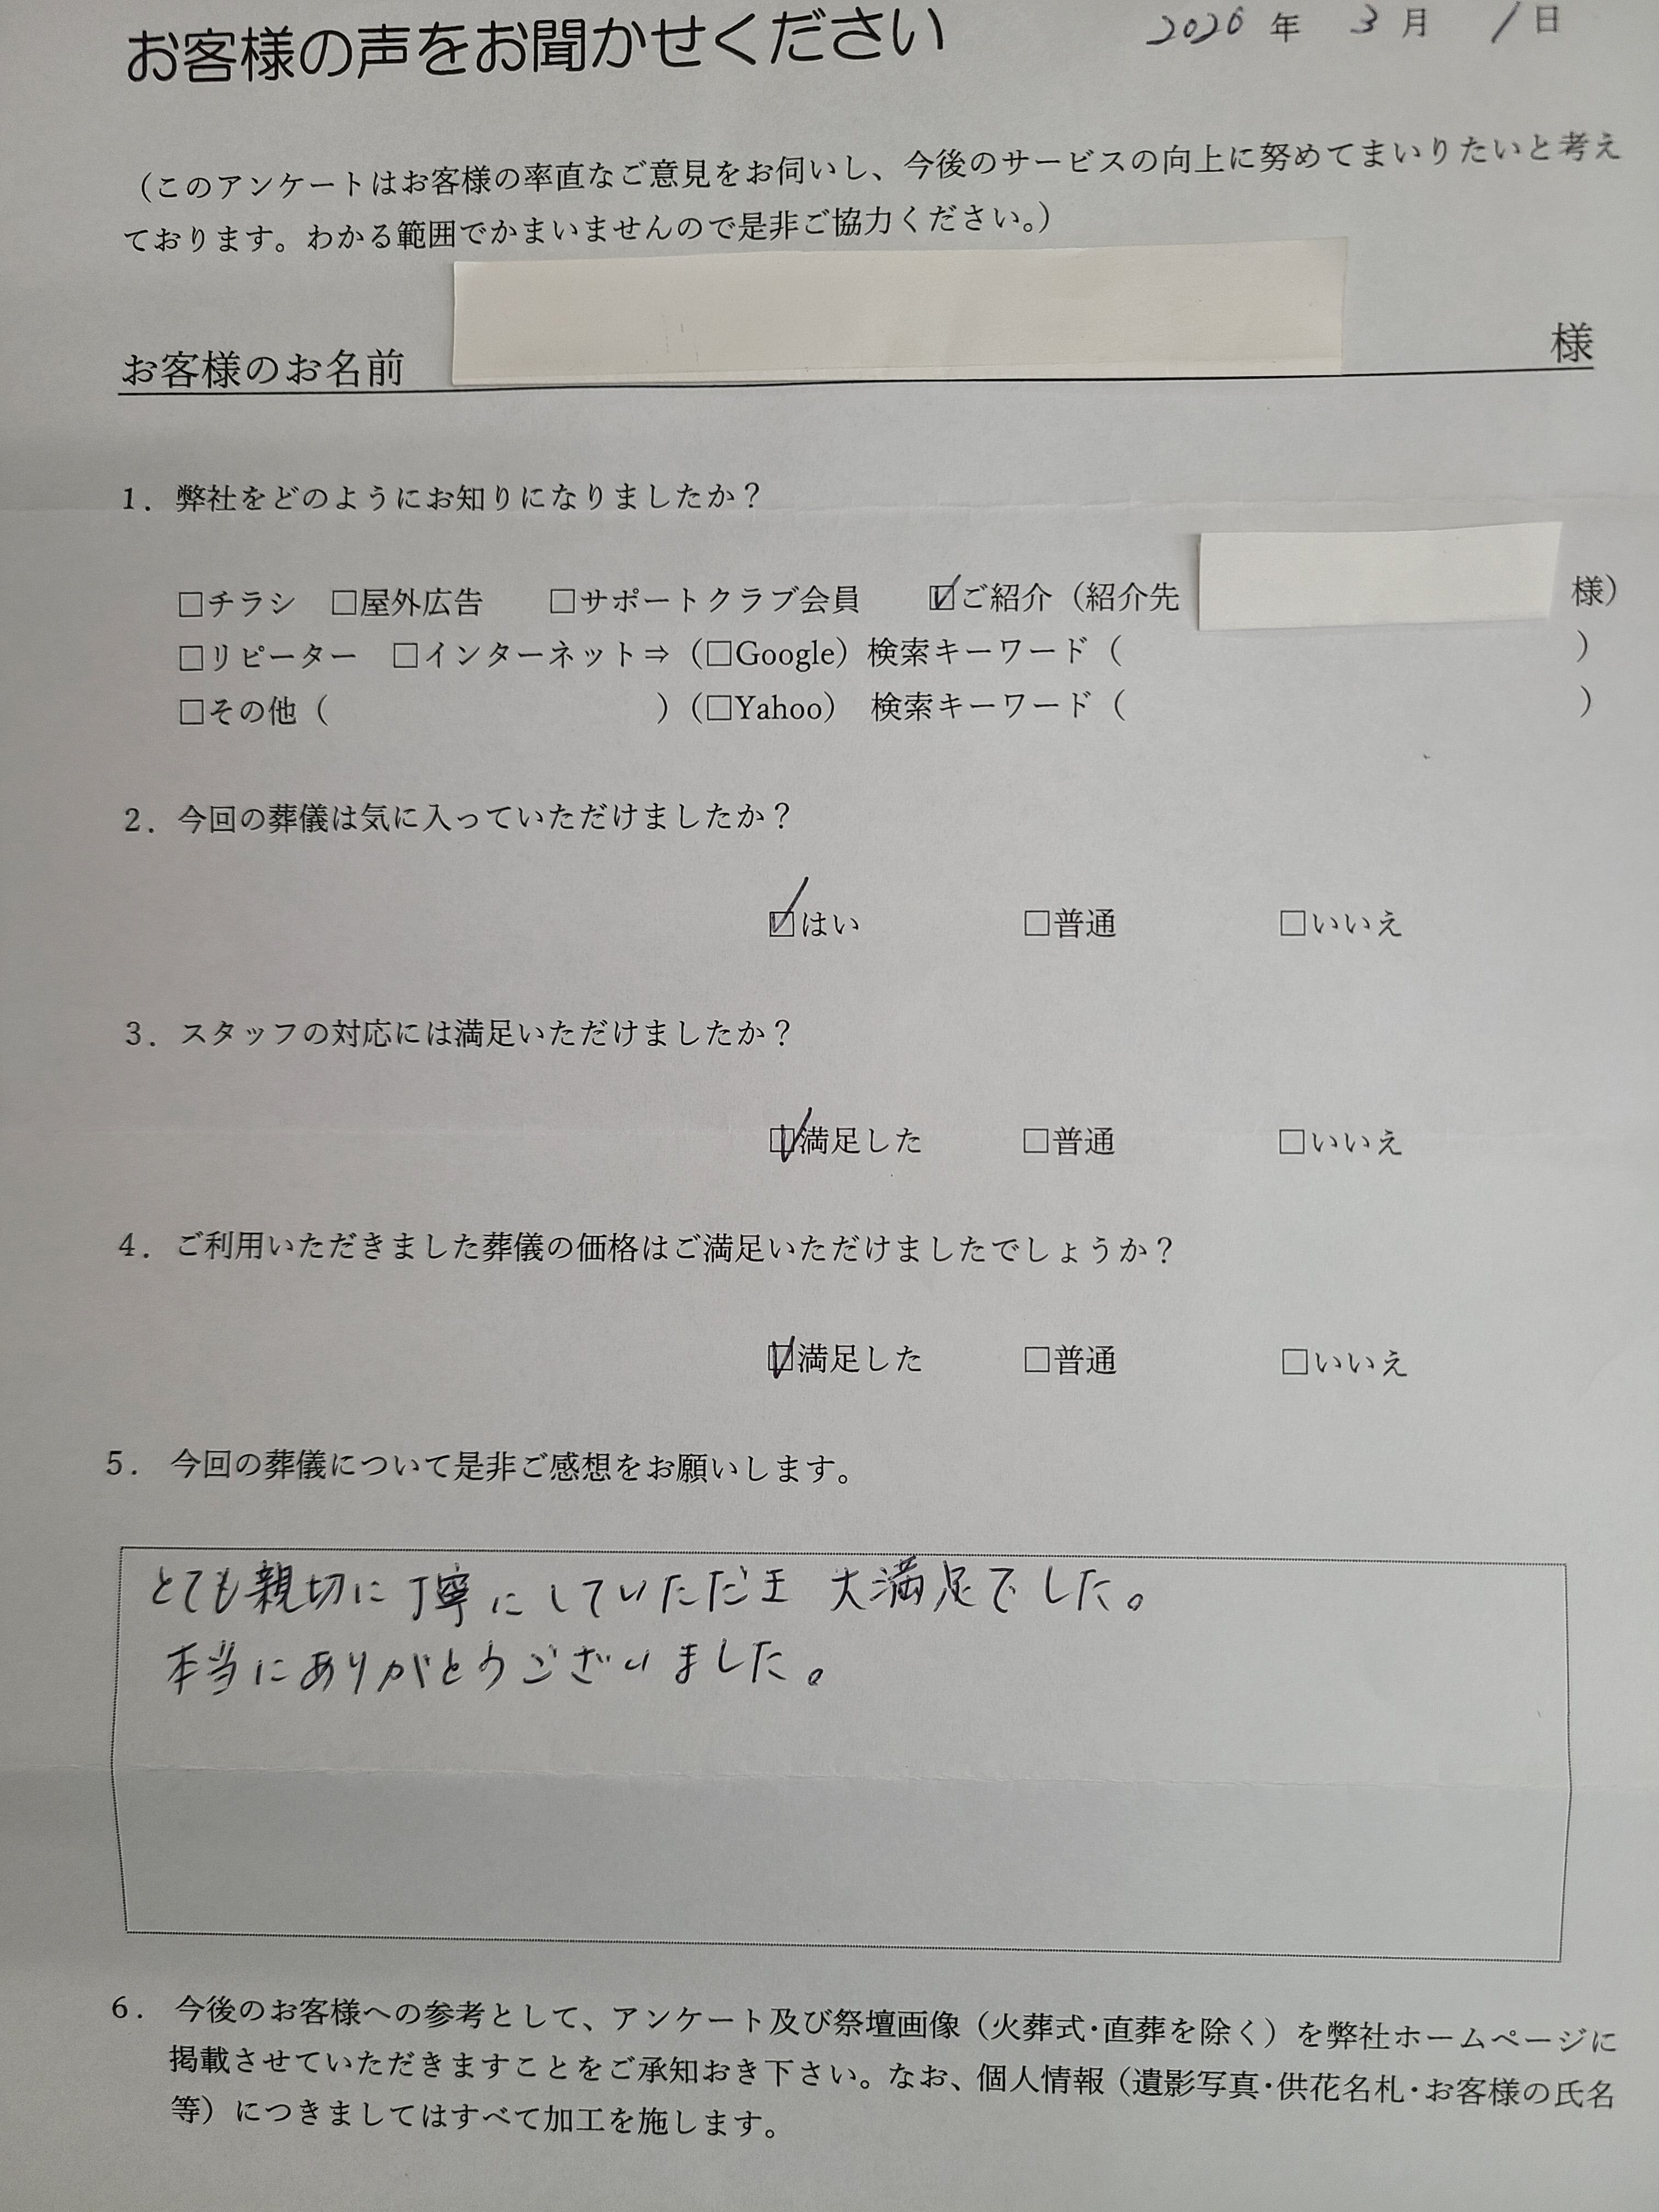 お客様の声をお聞かせください 2026 年 3 月 1 日
（このアンケートはお客様の率直なご意見をお伺いし、今後のサービスの向上に努めてまいりたいと考え
ております。わかる範囲でかまいませんので是非ご協力ください。）
お客様のお名前 様
1．弊社をどのようにお知りになりましたか？
□チラシ □屋外広告 □サポートクラブ会員 ☑ご紹介（紹介先 様）
□リピーター □インターネット⇒（□Google）検索キーワード（ ）
□その他（ ）（□Yahoo） 検索キーワード（ ）
2．今回の葬儀は気に入っていただけましたか？
☑はい □普通 □いいえ
3．スタッフの対応には満足いただけましたか？
☑満足した □普通 □いいえ
4．ご利用いただきました葬儀の価格はご満足いただけましたでしょうか？
☑満足した □普通 □いいえ
5． 今回の葬儀について是非ご感想をお願いします。
とても親切に丁寧にしていただき 大満足でした。
本当にありがとうございました。
6． 今後のお客様への参考として、アンケート及び祭壇画像（火葬式・直葬を除く）を弊社ホームページに
掲載させていただきますことをご承知おき下さい。なお、個人情報（遺影写真・供花名札・お客様の氏名
等）につきましてはすべて加工を施します。